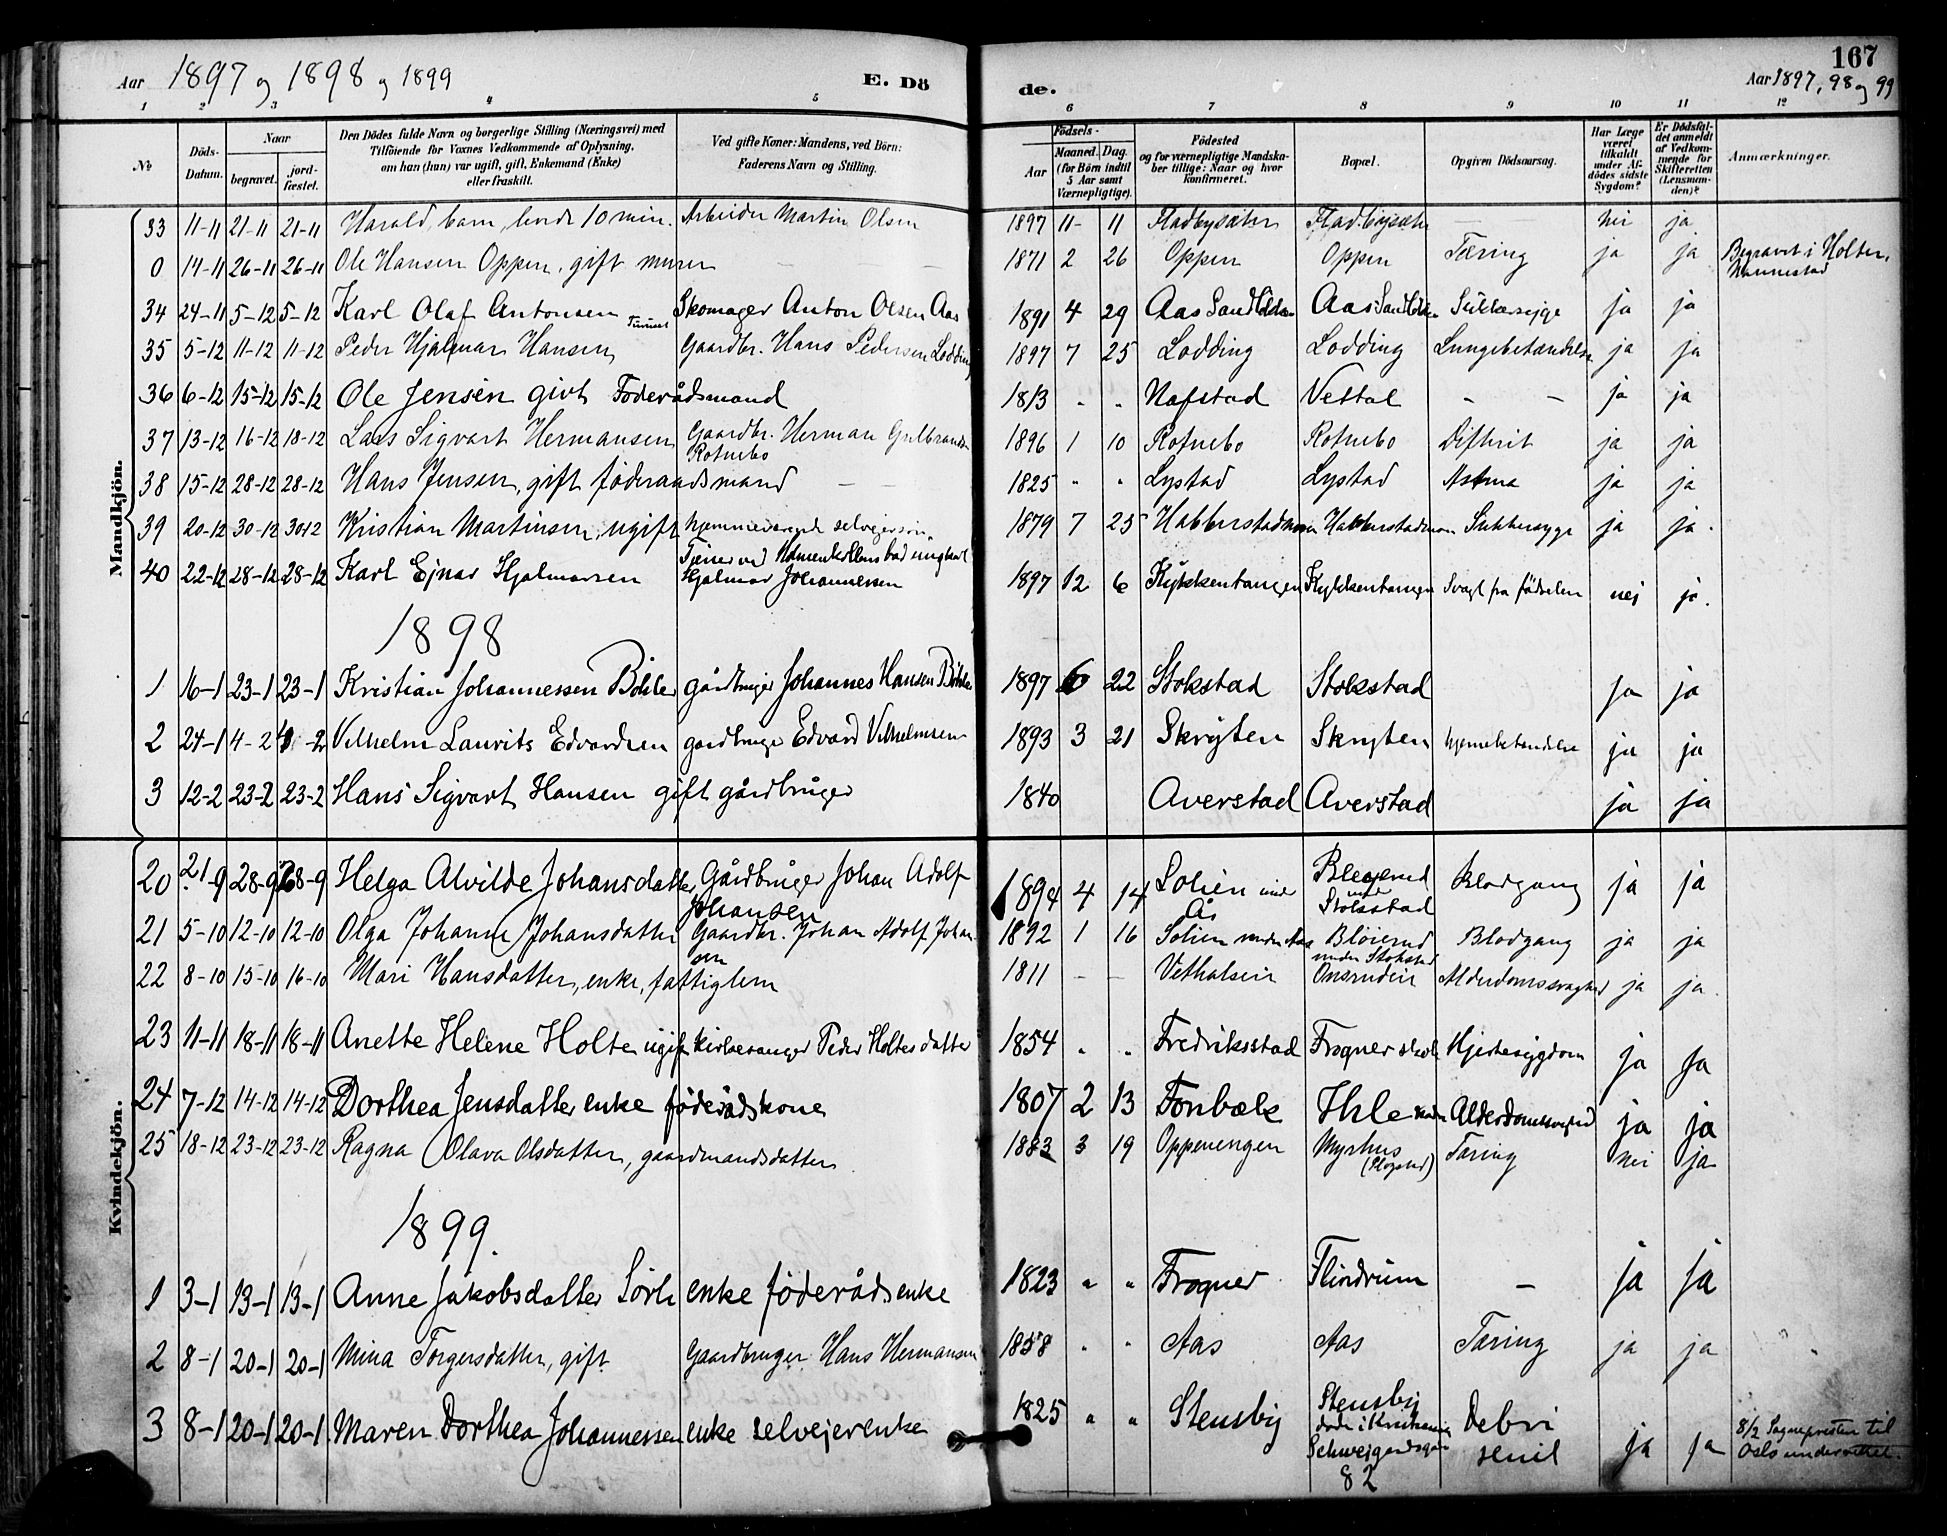 Aar 1897 og 1898 og 1899
E. Dö
de.
167
Aar 1897, 98 og 99
1 2 3 4 5 6 7 8 9 10 11 12
No
Döds-Datum.
Naar
begravet.
jord-fæstet.
Den Dödes fulde Navn og borgerlige Stilling (Næringsvei) med
Tilföiende for Voxnes Vedkommende af Oplysning,
om han (hun) var ugift, gift, Enkemand (Enke)
eller fraskilt.
Ved gifte Koner: Mandens, ved Börn:
Faderens Navn og Stilling.
Födsels-
Aar
Maaned. Dag.
(for Börn indtil
5 Aar samt
Værnepligtige).
Födested
og for værnepligtige Mandska-
ber tillige: Naar og hvor
konfirmeret.
Bopæl.
Opgiven Dödsaarsag.
Har Læge
været
tilkaldt
under Af-
dödes sidste
Sygdom?
Er Dödsfal-
det anmeldt
af Vedkom-
mende for
Skifteretten
(Lensman-
den)?
Anmærkninger.
Mandkjön.
33 11-11 21-11 21-11 Harald, barn, levde 10 min. Arbeider Martin Olsen 1897 11- 11 Fladbysæter Fladbysæter — nei ja
0 14-11 26-11 26-11 Ole Hansen Oppen, gift murer — — — 1871 2 26 Oppen Oppen Tæring ja ja Begravet i Holter,
Nannestad
34 24-11 5-12 5-12 Karl Olaf Antonsen Skomager Anton Olsen Aas 1891 4 29 Aas Aas Sukkersyge ja ja
35 5-12 11-12 11-12 Peder Hjalmar Hansen Gaardbr. Hans Pedersen Lodding 1897 7 25 Lodding Lodding Lungebetændelse ja ja
36 6-12 15-12 15-12 Ole Jensen givt Föderådsmand 1813 " " Nafstad Vettal — — ja ja
37 13-12 16-12 18-12 Lars Sigvart Hermansen Gaardbr. Herman Gulbrandsen
Rotnebo 1896 1 10 Rotnebo Rotnebo Difterit ja ja
38 15-12 28-12 28-12 Hans Jensen, gift föderaadsmand — — 1825 " " Lystad Lystad Astma ja ja
39 20-12 30-12 30-12 Kristian Martinsen, ugift hjemmeværende selveiersön 1879 7 25 Sukkersyge ja ja.
40 22-12 28-12 28-12 Karl Ejnar Hjalmarsen Tjener ved Holmenkollens bad ungkarl
Hjalmar Johannessen 1897 12 6 Kykkentangen Kykkentangen Svagt fra födselen nej ja.
1898
1 16-1 23-1 23-1 Kristian Johannessen Böhler gårdbruger Johannes Hansen Böhler 1897 6 22 Stokstad Stokstad ja ja
2 24-1 4-2 4-2 Vilhelm Laurits Edvardsen gardbruger Edvard Vilhelmsen 1893 3 21 Skryten Skryten hjernebetændelse ja ja
3 12-2 23-2 23-2 Hans Sigvart Hansen gift gårdbruger 1840 Averstad Averstad ja ja
Kvindekjön.
20 21-9 28-9 28-9 Helga Alvilde Johansdatter Gårdbruger Johan Adolf
Johansen 1894 4 14 Solien under
Ås Bleierud
under
Stokstad Blodgang ja ja
21 5-10 12-10 12-10 Olga Johanne Johansdatter Gaardbr. Johan Adolf Johan-
sen 1892 1 16 Solien under Aas Bløierud
under Stokstad Blodgang ja ja
22 8-10 15-10 16-10 Mari Hansdatter, enke, fattiglem 1811 — — Vethalseie Onsrudeie Alderdomssvaghed ja ja.
23 11-11 18-11 18-11 Anette Helene Holter ugift kirkesanger Peder Holters datter 1854 " " Fredriksstad Frogner skole Hjertesygdom ja ja
24 7-12 14-12 14-12 Dorthea Jensdatter enke föderådskone 1807 2 13 Fonbæk Ihle Alderdomssvaghed ja ja
25 18-12 23-12 23-12 Ragna Olava Olsdatter, gaardmandsdatter 1883 3 19 Oppenengen Myrhus
Tæring nei ja
1899.
1 3-1 13-1 13-1 Anne Jakobsdatter Sörli enke föderådsenke 1823 " " Frogner Flindrum — ja ja
2 8-1 20-1 20-1 Mina Torgersdatter, gift Gaardbruger Hans Hermansen 1858 " " Aas Aas Tæring ja ja
3 8-1 20-1 20-1 Maren Dorthea Johannessen enke selvejerenke 1825 " " Stensby Stensby
döde i Kristiania
Schweigaardsgade
82 Debri
senil ja ja 8/2 Sogneprestentil
Oslo underrettet.